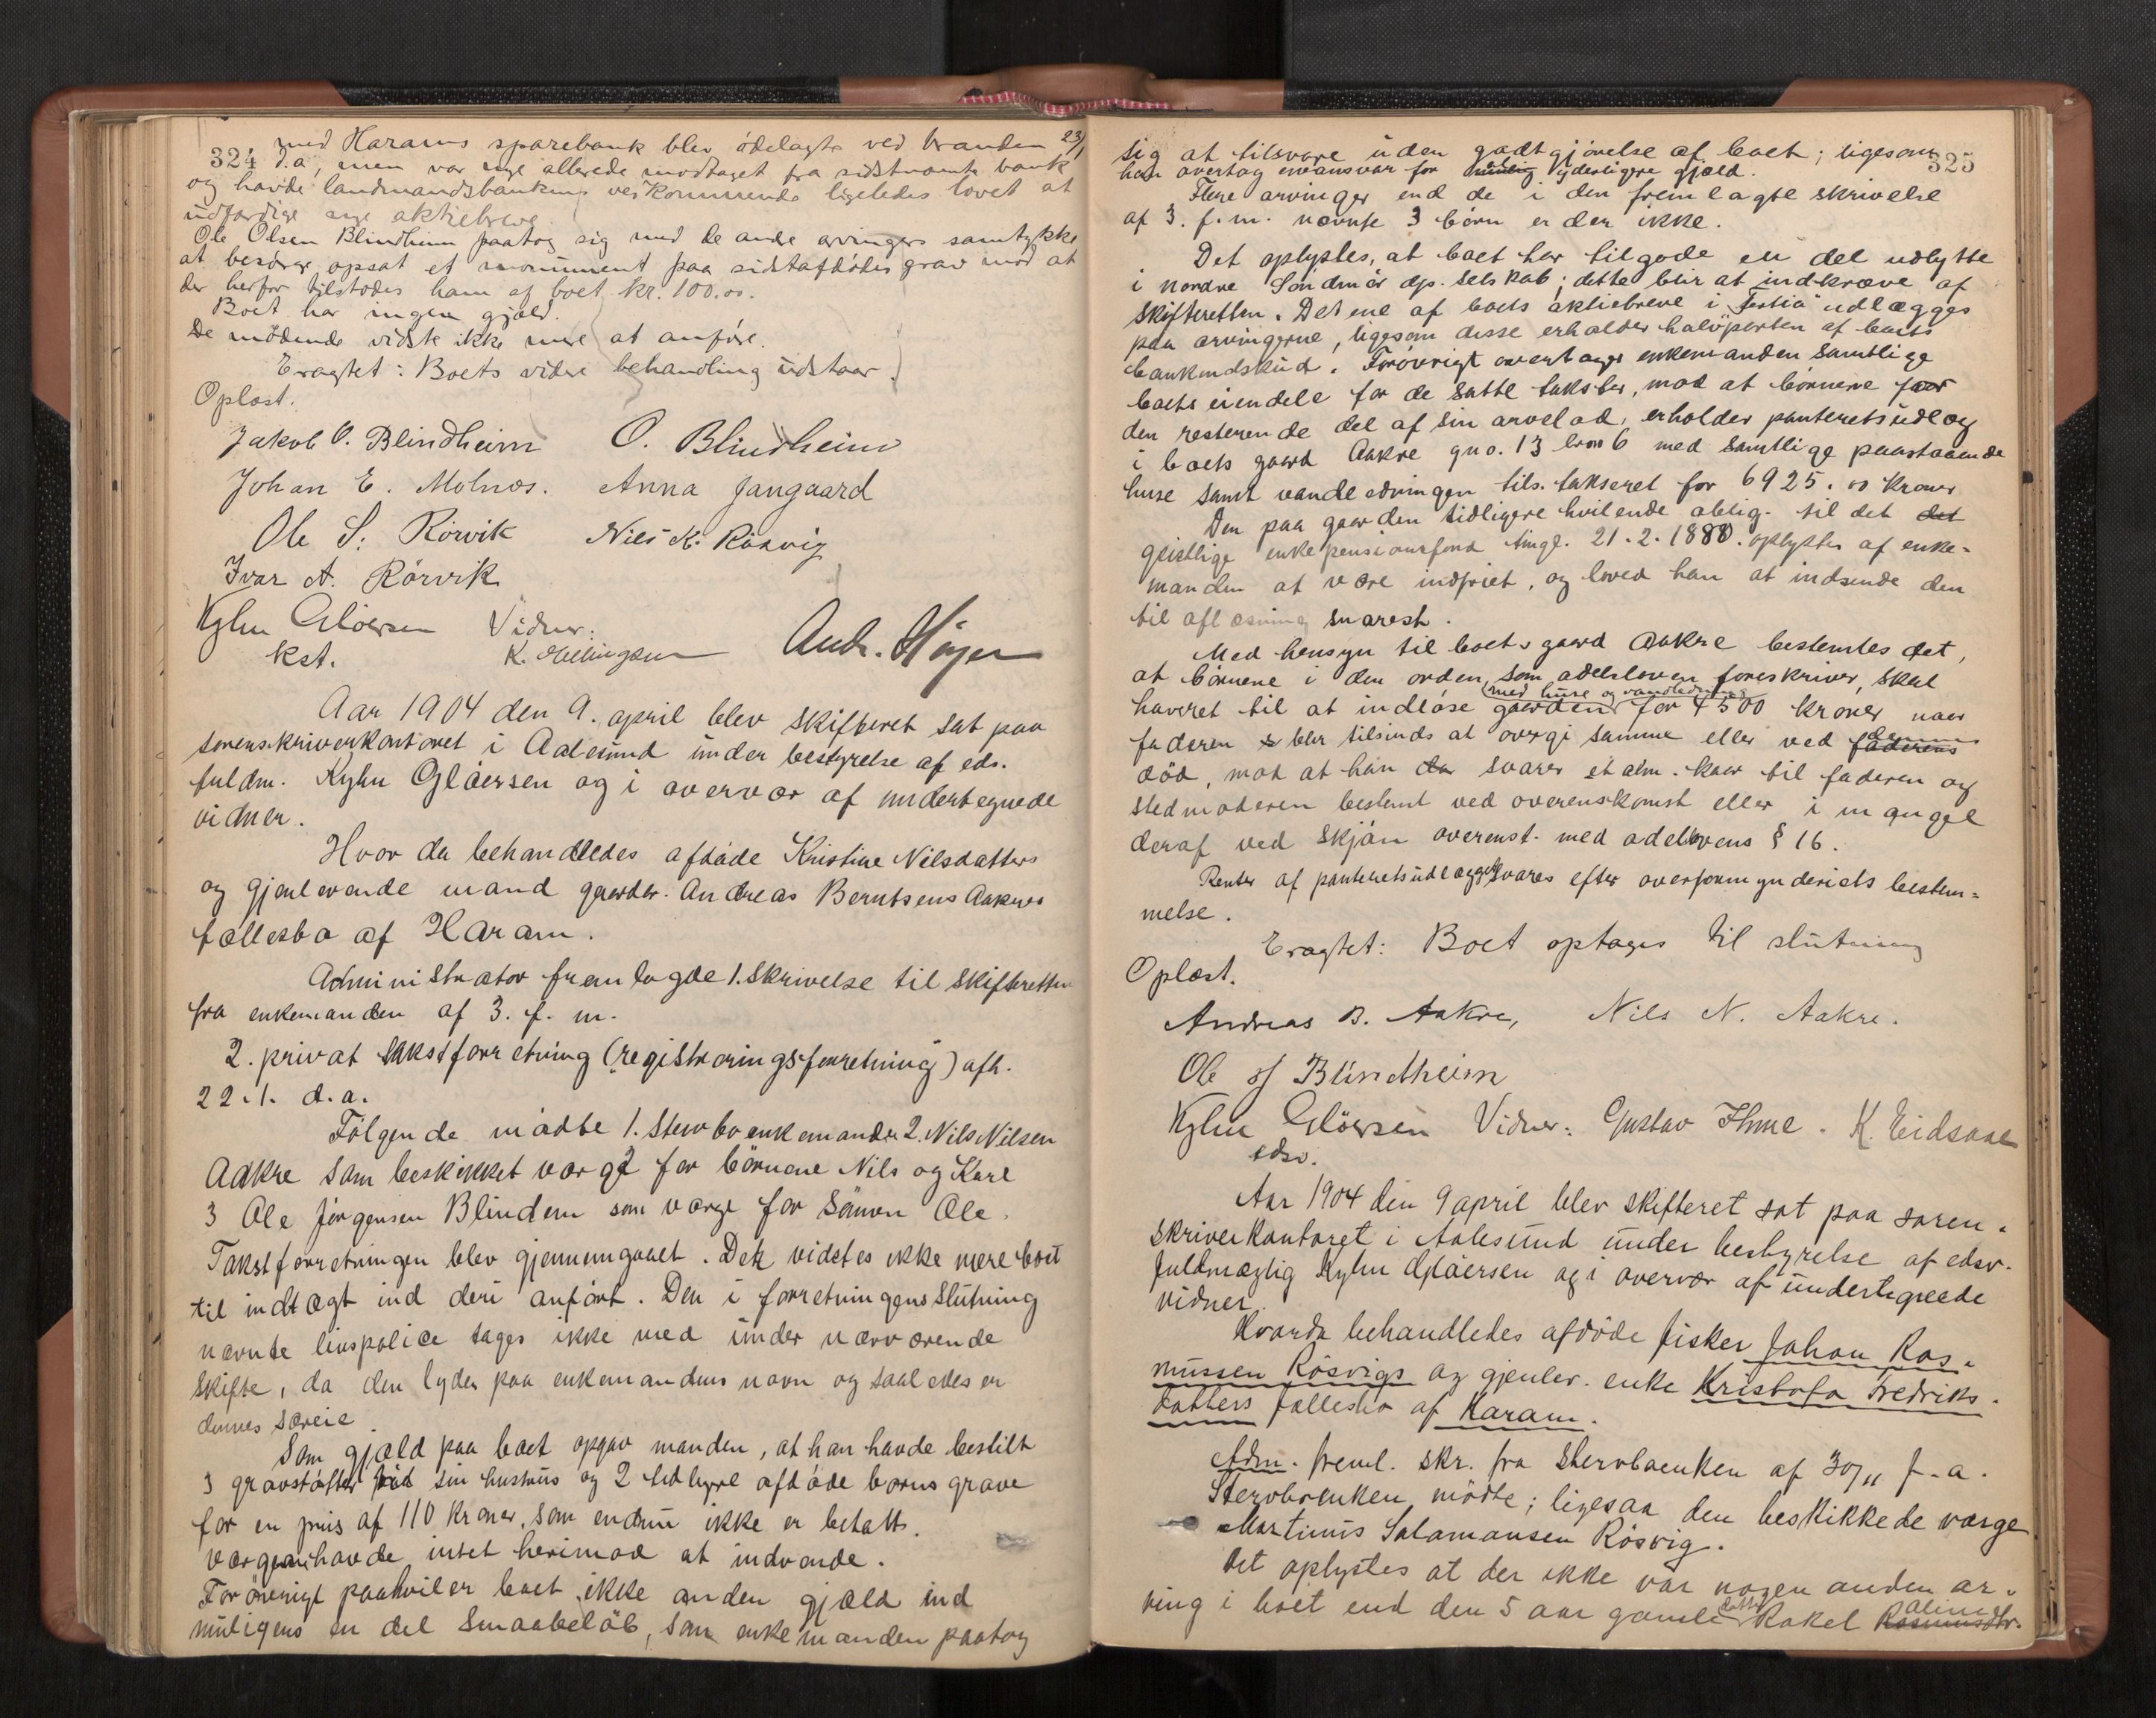 324
med Harams sparebank blev ödelagte ved branden 23/1
d.a, men var nye allerede modtaget fra sidstnævnte bank
og havde landmandsbankens vedkommende ligeledes lovet at
udfærdige nye aktiebreve.
Ole Olsen Blindheim paatog sig med de andre arvingers samtykke
at besörge opsat et monument paa sidstafdödes grav mod at
der herfor tilstodes ham af boet kr. 100.00.
Boet har ingen gjæld.
De mödende vidste ikke mere at anföre.
Eragtet: Boets videre behandling udstaar.
Oplæst.
Jakob O. Blindheim O. Blindheim
Johan E. Molnes. Anna Jangaard
Ole S. Rörvik Nils K. Rösvig
Ivar A. Rörvik
Kyhn Glöersen Vidner:
kst. K. Mellingsen Andr. Höyer
Aar 1904 den 9. april blev skifteret sat paa
sorenskriverkontoret i Aalesund under bestyrelse af eds.
fuldm. Kyhn Glöersen og i overvær af undertegnede
vidner.
Hvor da behandledes afdöde Kristine Nilsdatters
og gjenlevende mand gaardbr. Andreas Berntsens Aakres
fællesbo af Haram.
Administrator fremlagde 1. skrivelse til skifteretten
fra enkemanden af 3. f. m.
2. privat takstforretning (registreringsforretning) afh.
22.1. d.a.
Fölgende mödte 1. Stervboenkemanden 2. Nils Nilsen
Aakre som beskikket verge for börnene Nils og Karl
3 Ole Jörgensen Blindem som værge for Sönnen Ole.
Takstforretningen blev gjennemgaaet. Det vidstes ikke mere boet
til indtægt ind deri anfört. Den i forretningens Slutning
nævnte livspolice tages ikke med under nærværende
skifte, da den lyder paa enkemandens navn og saaledes er
dennes særeie.
Som gjæld paa boet opgav manden, at han havde bestilt
3 gravstötter sin hustrus og 2 tidligere afdöde börns grave
for en pris af 110 kroner, som endnu ikke er betalt.
Værgerne havde intet herimod at indvende.
Forövrigt paahviler boet ikke anden gjæld ind
muligens en del Smaabelöb, som enkemanden paatog
325
sig at tilsvare uden godtgjörelse af boet; ligesom
han overtog eneansvar for mulig yderligere gjæld.
Flere arvinger end de i den fremlagte skrivelse
af 3. f. m. nævnte 3 börn er der ikke.
Det oplystes, at boet har tilgode en del udbytte
i nordre Söndmör dp. selskab; dette blir at indkræve af
skifteretten. Det ene af boets aktiebreve i "Festia" udlægges
paa arvingerne, ligesom disse erholder halvparten af boets
bankindskud. Forövrigt overtager enkemanden samtlige
boets eiendele for de satte takster, mod at börnene for
den resterende del af sin arvelod, erholder panteretsudlæg
i boets gaard Aakre gno. 13 bno 6 med samtlige paastaaende
huse samt vandledningen tils. takseret for 6925.00 kroner
Den paa gaarden tidligere hvilende oblig. til det det
geistlige enkepensionsfond tingl. 21.2.1888. oplystes af enke=
manden at være indfriet, og loved han at indsende den
til aflæsning snarest.
Med hensyn til boets gaard Aakre bestemtes det,
at börnene i den orden, som odelsloven foreskriver, skal
(med huse og vandledning)
haveret til at indlöse gaarden for 4500 kroner naar
faderen blir tilsinds at overgi samme eller ved faderens dennes
död, mod at han da svarer et alm. kaar til faderen og
stedmoderen bestemt ved overenskomst eller i mangel
deraf ved skjön overenst. med odellovens § 16.
Renter af panteretsudlægget svares efter overformynderiets bestem=
melse.
Eragtet: Boet optages til slutning
Oplæst.
Andreas B. Aakre, Nils N. Aakre.
Ole J Blindheim
Kyhn Glöersen Vidner: Gustav Ihme. K. Eidsaae
edsv.
Aar 1904 den 9 april blev skifteret sat paa soren=
skriverkontoret i Aalesund under bestyrelse af edsv.
fuldmægtig Kyhn Glöersen og i overvær af undertegnede
vidner.
Hvorda behandledes afdöde fisker Johan Ras=
mussen Rösvigs og gjenlev. enke Kristofa Fredriks=
datters fællesbo af Haram.
Adm. freml. skr. fra stervboenken af 30/11 f. a.
Stervboenken mödte; ligesaa den beskikkede værge
Martinus Salamonsen Rösvig.
Det oplystes at der ikke var nogen anden ar=
ving i boet end den 5 aar gamle datter Rakel Rasmusdtr. Aline